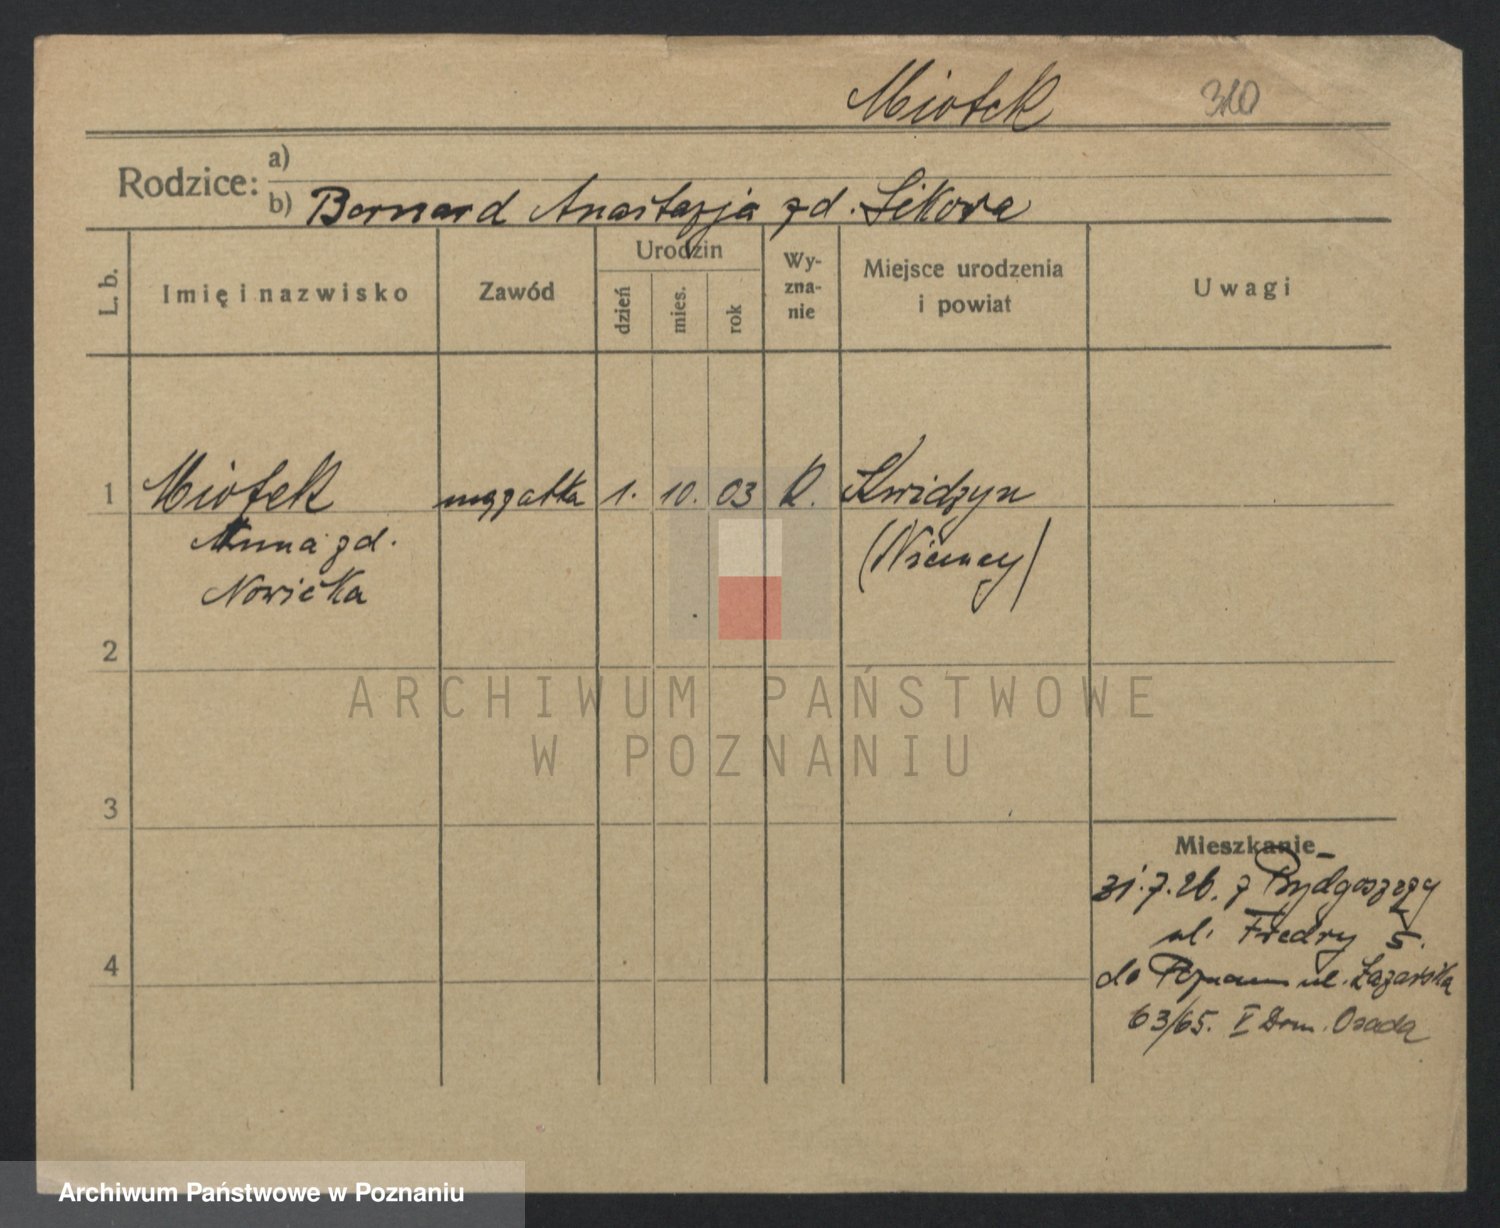 Miotek 310
Rodzice: a)
b) Bernard Anastazja zd. Sikora
L. b.
Imię i nazwisko
Zawód
Urodzin
dzień
mies.
rok
Wy-
zna-
nie
Miejsce urodzenia
i powiat
Uwagi
1 Miotek mężatka 1. 10. 03 R. Kwidzyn
Anna zd. (Niemcy)
Nowicka
2
ARCHIWUM PAŃSTWOWE
W POZNANIU
3
Mieszkanie
31.7.26. z Bydgoszczy
ul. Fredry 5.
4 do Poznania ul. Łazarska
63/65. V Dom. Osada
Archiwum Państwowe w Poznaniu